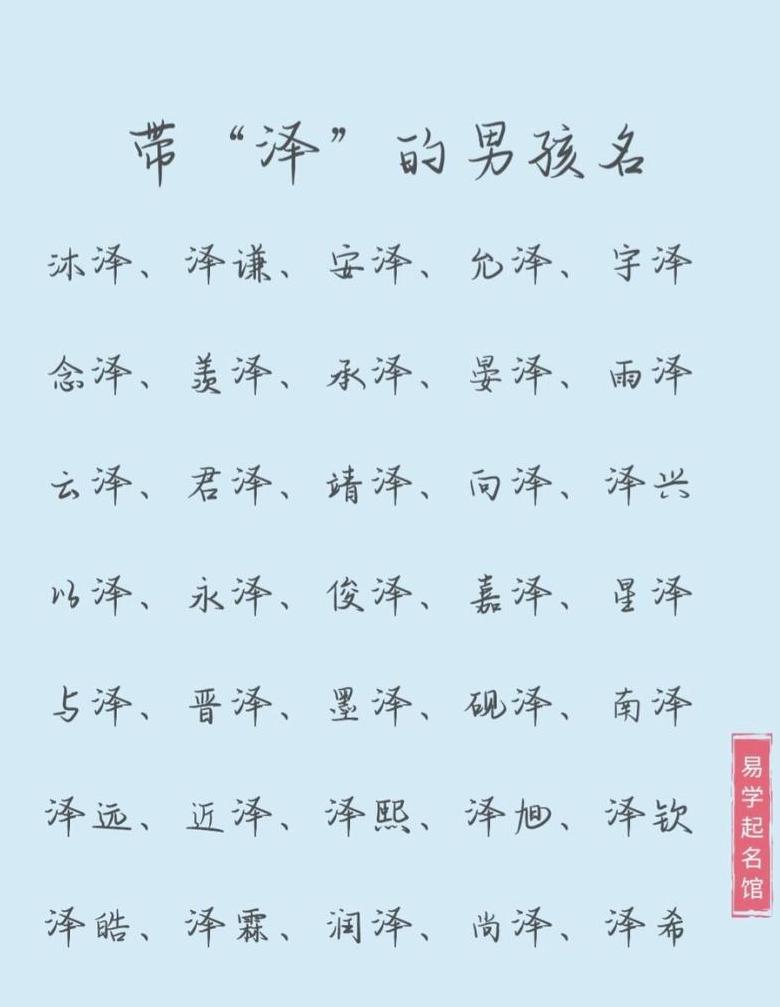 带“泽”的男孩名
沐泽、泽谦、安泽、允泽、宇泽
念泽、羡泽、承泽、晏泽、雨泽
云泽、君泽、靖泽、向泽、泽兴
以泽、永泽、俊泽、嘉泽、星泽
与泽、晋泽、墨泽、砚泽、南泽
泽远、近泽、泽熙、泽旭、泽钦
泽皓、泽霖、润泽、尚泽、泽希
易学起名馆